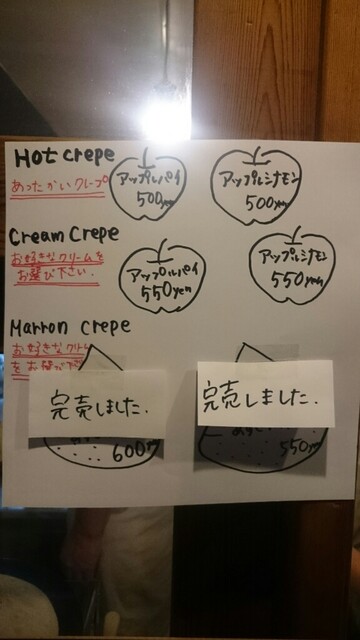 Hot crepe
あったかいクレープ
アップルパイ
500yen
アップルシナモン
500yen
Cream Crepe
お好きなクリームを
お選び下さい.
アップルパイ
550yen
アップルシナモン
550yen
Marron crepe
お好きなクリーム
をお選び下
完売しました.
600
完売しました.
550